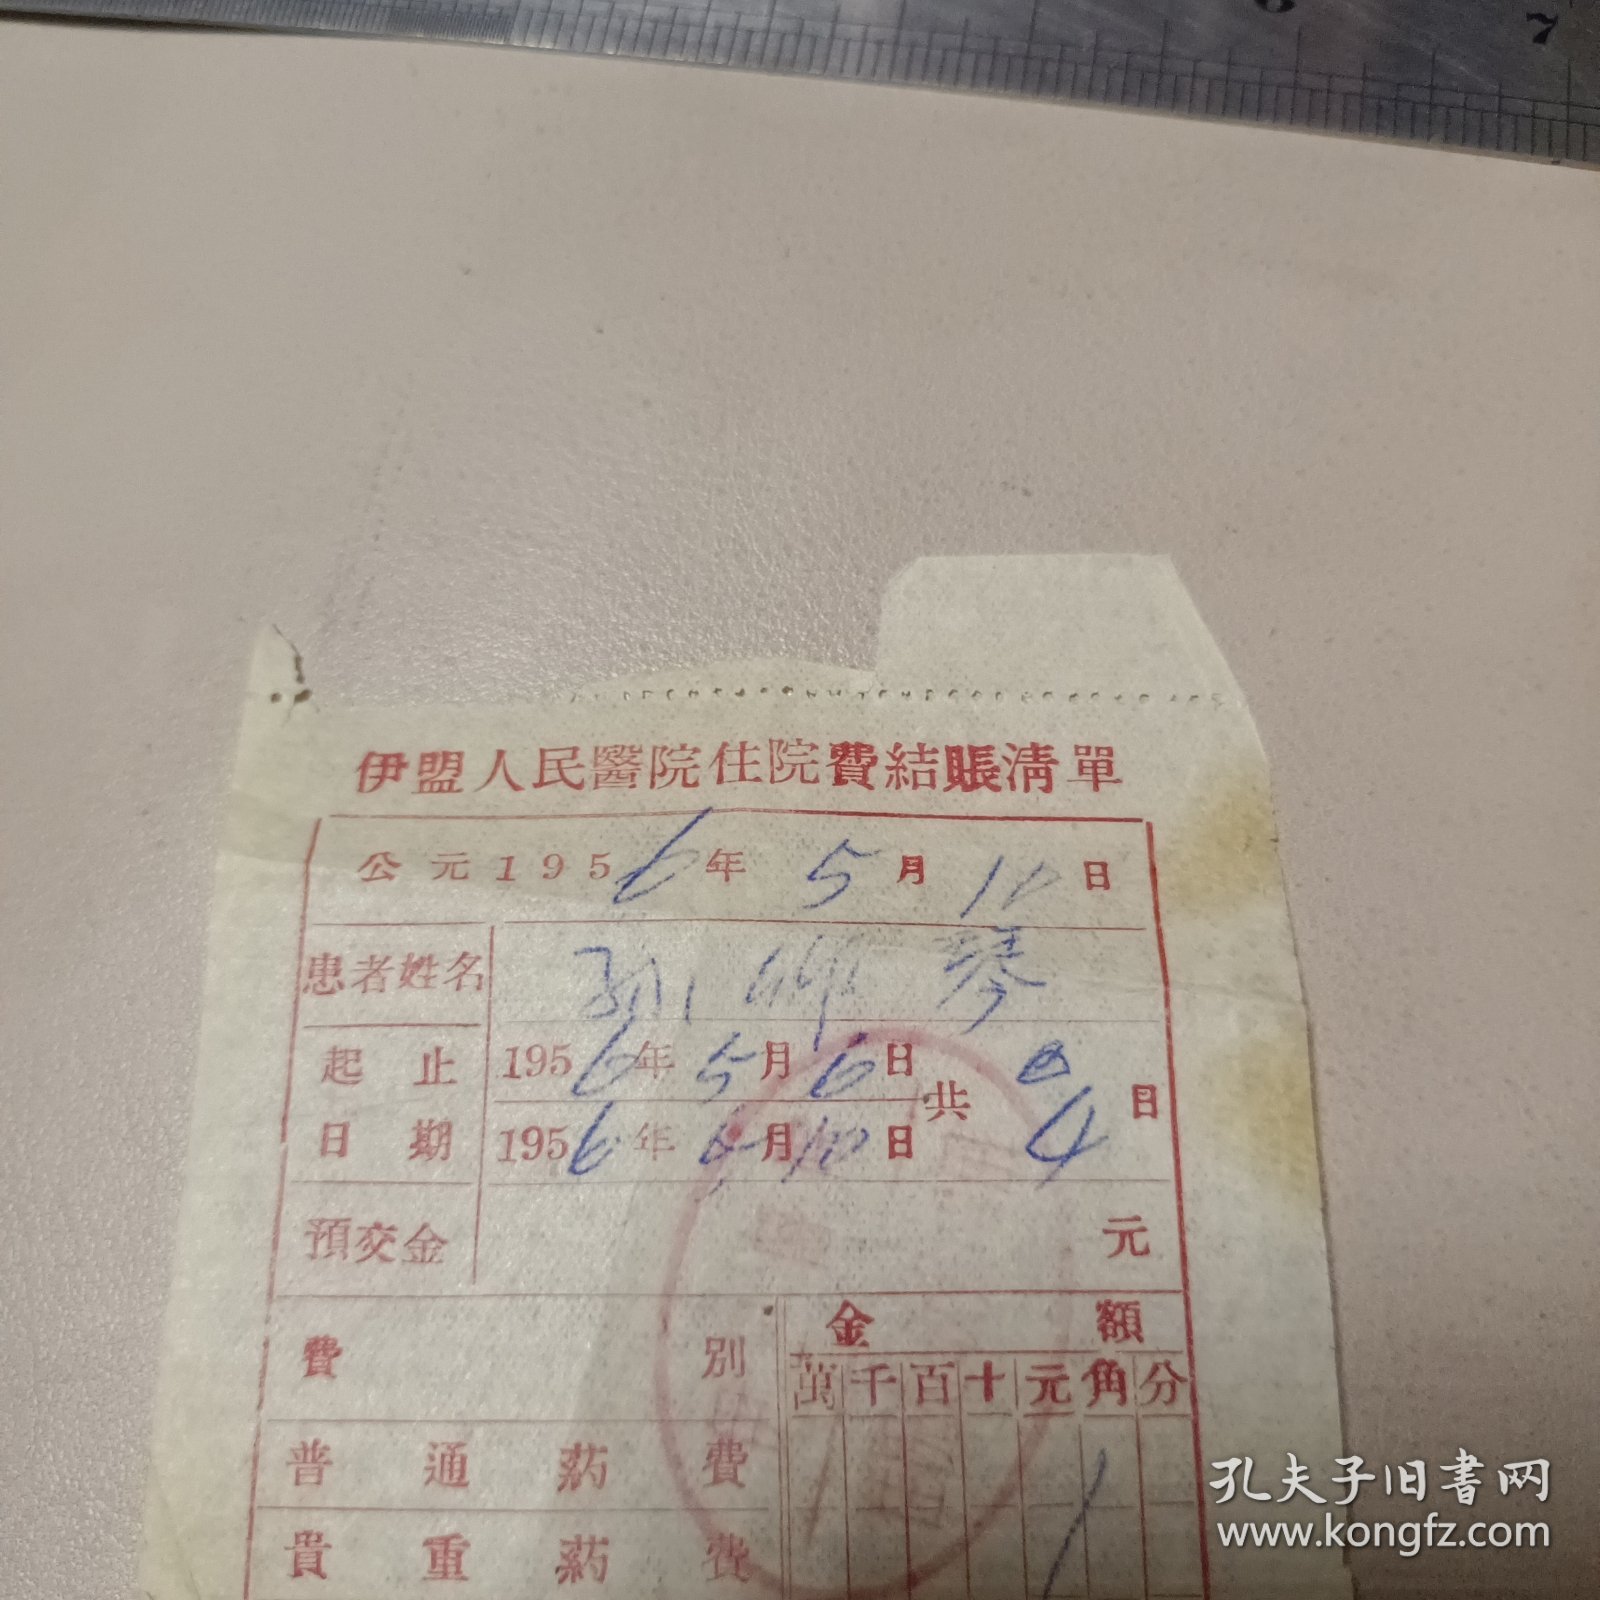 6
7
伊盟人民醫院住院費結賬清單
公元1956年5月10日
患者姓名 琴
起止日期 1956年5月6日 共4日
1956年5月10日
預交金 元
費別 金額
萬千百十元角分
普通葯費
貴重葯費
孔夫子旧書网
www.kongfz.com